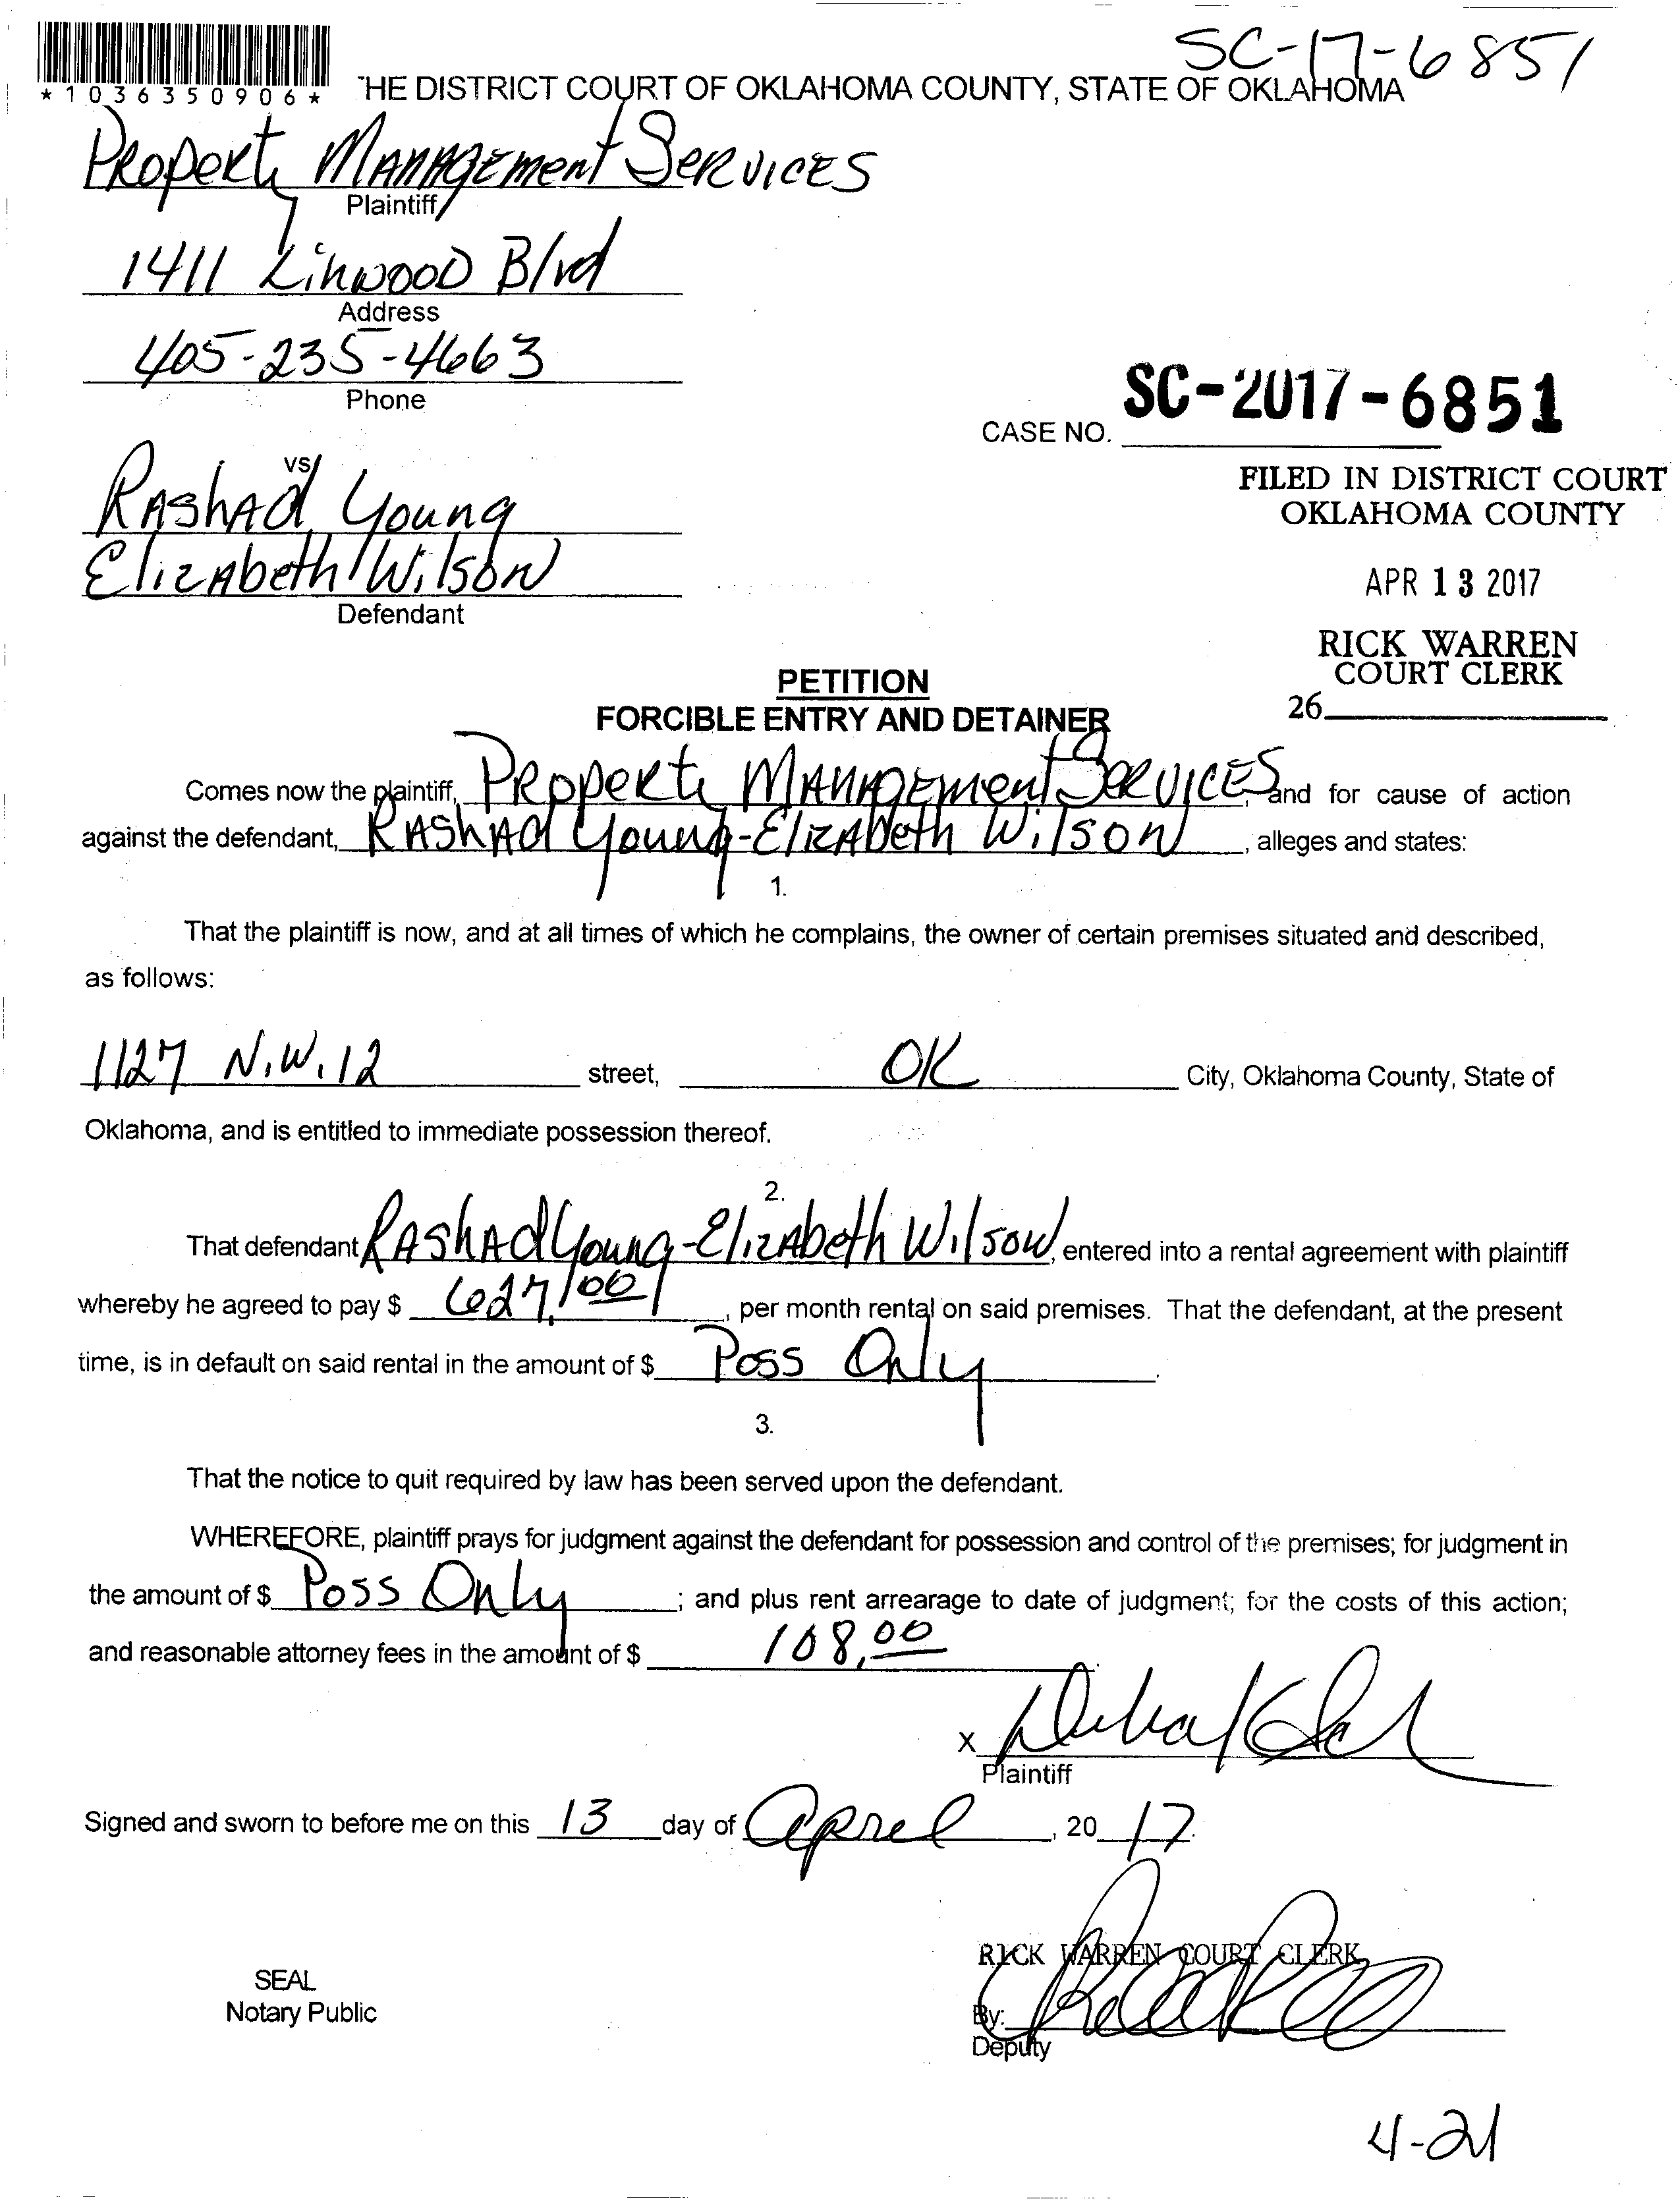 SC-17-6851
*1036350906*
'HE DISTRICT COURT OF OKLAHOMA COUNTY, STATE OF OKLAHOMA
Property Management Services
Plaintiff
1411 Linwood Blvd
Address
405-235-4663
Phone
CASE NO. SC-2017-6851
vs
Rashad Young
Elizabeth Wilson
Defendant
FILED IN DISTRICT COURT
OKLAHOMA COUNTY
APR 13 2017
RICK WARREN
COURT CLERK
26
PETITION
FORCIBLE ENTRY AND DETAINER
Comes now the plaintiff, Property Management Services, and for cause of action
against the defendant, Rashad Young-Elizabeth Wilson, alleges and states:
1.
That the plaintiff is now, and at all times of which he complains, the owner of certain premises situated and described,
as follows:
1127 N.W. 12 street, OK City, Oklahoma County, State of
Oklahoma, and is entitled to immediate possession thereof.
2.
That defendant Rashad Young-Elizabeth Wilson, entered into a rental agreement with plaintiff
whereby he agreed to pay $ 627.00, per month rental on said premises. That the defendant, at the present
time, is in default on said rental in the amount of $ Poss Only.
3.
That the notice to quit required by law has been served upon the defendant.
WHEREFORE, plaintiff prays for judgment against the defendant for possession and control of the premises; for judgment in
the amount of $ Poss Only; and plus rent arrearage to date of judgment; for the costs of this action;
and reasonable attorney fees in the amount of $ 108.00
X
Plaintiff
Signed and sworn to before me on this 13 day of April, 2017.
RICK WARREN COURT CLERK
SEAL
Notary Public
By:
Deputy
4-21